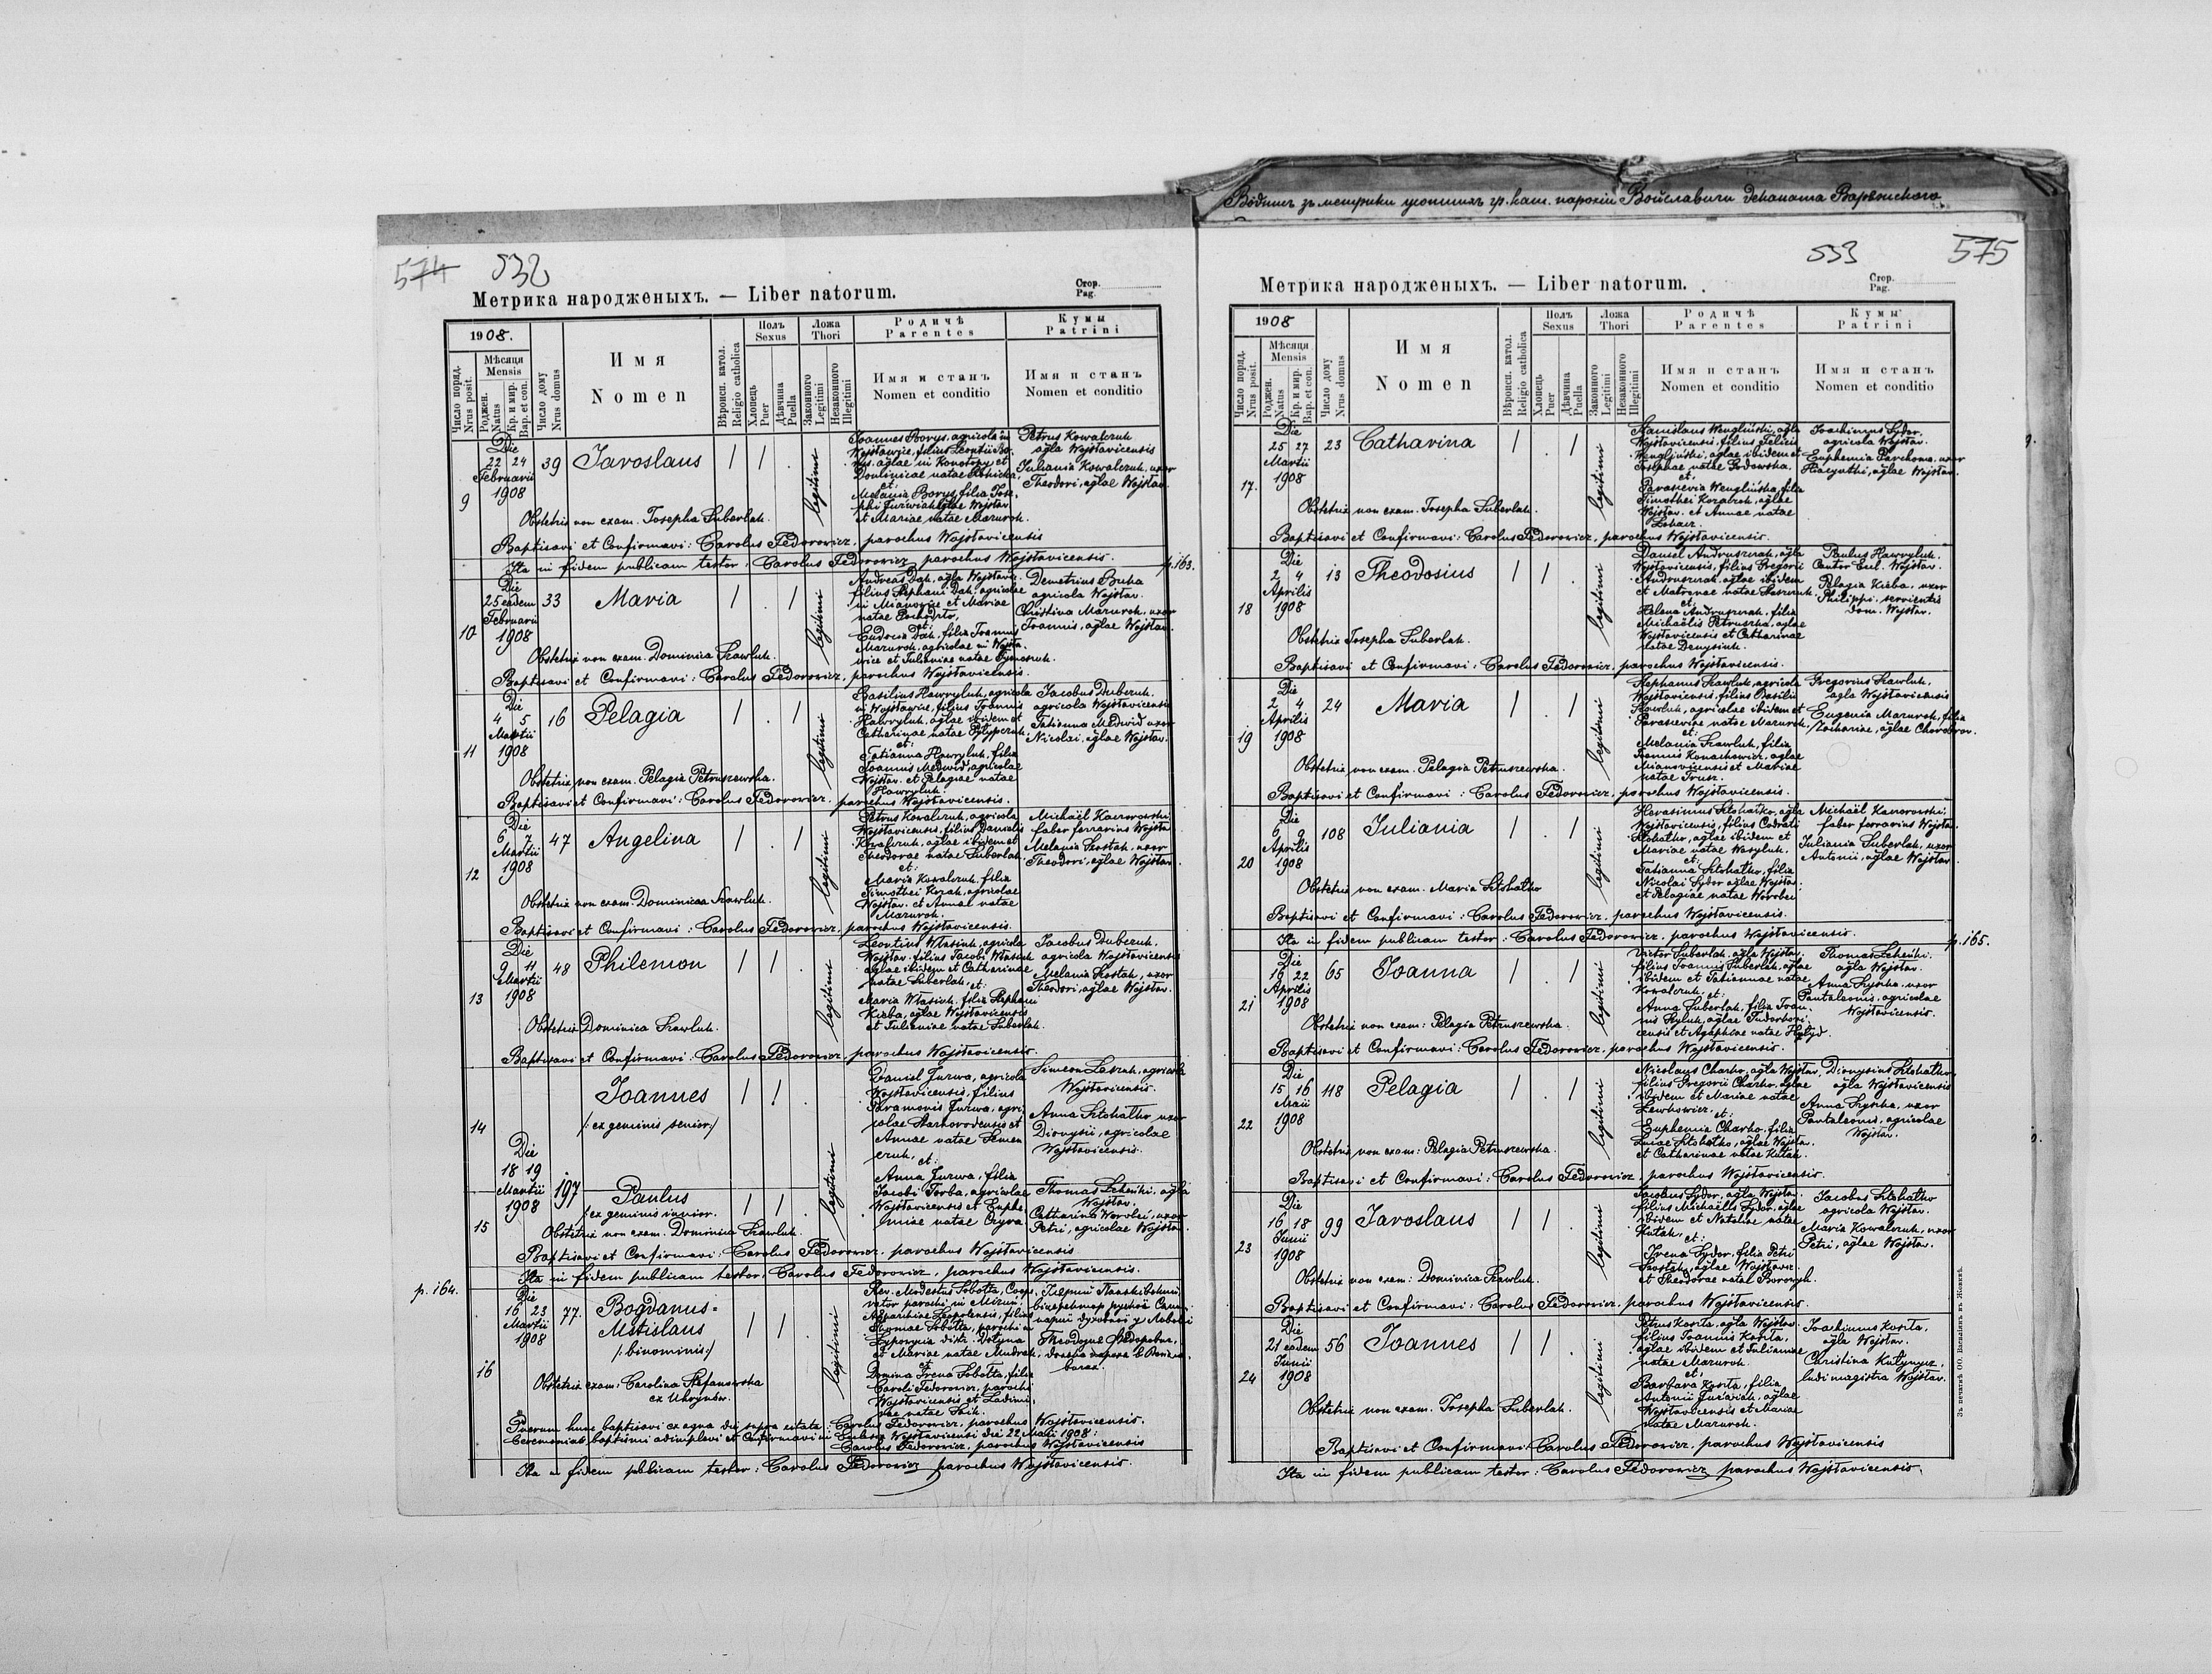 Вōдпись зъ метрики усопшихъ гр. кат. парохіи Войславичи деканата Варяжского
574 532
Метрика народженыхъ. — Liber natorum.
Стор.
Pag.
1908.
Число поряд.
Nrus posit.
Мѣсяця
Mensis
Роджен.
Natus
Кр. и мир.
Bap. et con.
Число дому
Nrus domus
Имя
Nomen
Вѣроисп. катол.
Religio catholica
Полъ
Sexus
Хлопець
Puer
Дѣвчина
Puella
Ложа
Thori
Законного
Legitimi
Незаконного
Illegitimi
Родичѣ
Parentes
Имя и станъ
Nomen et conditio
Кумы
Patrini
Имя и станъ
Nomen et conditio
9
Die
22 24
Februarii
1908
39
Jaroslaus
1 1 .
legitimi
Joannes Borys, agricola in
Wojsławice, filius Leontii Bo-
rys, aglae in Konotopy et
Dominicae natae
et:
Melania Borys, filia Jose-
phi Jurwiak, aglae Wojsław.
et Mariae natae Mazurok.
Petrus Kowalczuk
agla Wojsławicensis
Juliania Kowalczuk, uxor
Theodori, aglae Wojsław.
Obstetrix non exam. Josepha Suberlak.
Baptisavi et Confirmavi: Carolus Fedorowicz, parochus Wojsławicensis
Ita in fidem publicam testor: Carolus Fedorowicz, parochus Wojsławicensis.
p. 163.
10
Die
25 eadem
Februarii
1908
33
Maria
1 . 1
legitimi
Andreas Dak, agla Wojsławic.
filius Stephani Dak, agricolae
in Mianowice et Mariae
natae
et:
Eudocia Dak, filia Joannis
Mazurok, agricolae in Wojsła-
wice et Julianiae natae Tymoszuk.
Demetrius Buka
agricola Wojsław.
Christina Mazurok, uxor
Joannis, aglae Wojsław.
Obstetrix non exam. Dominica Szawluk.
Baptisavi et Confirmavi: Carolus Fedorowicz, parochus Wojsławicensis.
11
Die
4 5
Martii
1908
16
Pelagia
1 . 1
legitimi
Basilius Hawryluk, agricola
in Wojsławice, filius Joannis
Hawryluk, aglae ibidem et
Catharinae natae Pylypczuk
et:
Tatianna Hawryluk, filia
Joannis Medwid, agricolae
Wojsław. et Pelagiae natae
Hawryluk.
Jacobus Dubczuk.
agricola Wojsławicensis
Tatianna Medwid, uxor
Nicolai, aglae Wojsław.
Obstetrix non exam. Pelagia Petruszewska.
Baptisavi et Confirmavi: Carolus Fedorowicz, parochus Wojsławicensis.
12
Die
6 7
Martii
1908
47
Angelina
1 . 1
legitimi
Petrus Kowalczuk, agricola
Wojsławicensis, filius Danielis
Kowalczuk, aglae ibidem et
Theodorae natae Suberlak
et:
Maria Kowalczuk, filia
Timothei Kozak, agricolae
Wojsław. et Annae natae
Mazurok.
Michaël Kaczorowski
faber ferrarius Wojsła.
Melania Szostak, uxor
Theodori, aglae Wojsław.
Obstetrix non exam. Dominica Szawluk.
Baptisavi et Confirmavi: Carolus Fedorowicz, parochus Wojsławicensis.
13
Die
9 11
Martii
1908
48
Philemon
1 1 .
legitimi
Leontius Własiuk, agricola
Wojsław. filius Jacobi Własiuk
aglae ibidem et Catharinae
natae Suberlak, et:
Maria Własiuk, filia Stephani
Kieba, aglae Wojsławicensis
et Julianiae natae Suberlak.
Jacobus Dubczuk,
agricola Wojsławicensis
Melania Szostak, uxor
Theodori, aglae Wojsław.
Obstetrix Dominica Szawluk.
Baptisavi et Confirmavi: Carolus Fedorowicz, parochus Wojsławicensis.
14
Joannes
/: ex geminis senior:/
1 1 .
Daniel Jurwa, agricola
Wojsławicensis, filius
Paramonis Jurwa, agri-
colae Starhorodensis et
Annae natae Semen-
czuk, et:
Simeon agricola
Wojsławicensis.
Anna Sitchatko, uxor
Dionysii, agricolae
Wojsławicensis.
Die
18 19
Martii
1908
197
legitimi
15
Paulus
/: ex geminis iunior.
1 1 .
Anna Jurwa, filia
Jacobi Torba, agricolae
Wojsławicensis et Euphe-
miae natae
Thomas agla
Wojsław.
Catharina Worobei, uxor
Petri, agricolae Wojsław.
Obstetrix non exam. Dominica Szawluk.
Baptisavi et Confirmavi: Carolus Fedorowicz, parochus Wojsławicensis
Ita in fidem publicam testor: Carolus Fedorowicz, parochus Wojsławicensis.
p. 164.
16
Die
16 23
Martii
1908
77.
Bogdanus=
Mstislaus
/: binominis:/
1 1 .
legitimi
Rev. Modestus Sobotta, Coop.
filius
Thomae Sobotta, parochi in
Dolyna
et Mariae natae Mudrak,
et
Domina Irena Sobotta, filia
Caroli Fedorowicz, parochi
Wojsławicensis et
natae
Obstetrix exam: Carolina Stefanowska
ex Uhrynów.
Puerum hunc baptisavi ex aqua die supra citata: Carolus Fedorowicz, parochus Wojsławicensis.
Ceremonias baptismi adimplevi et Confirmavi in Ecclesia Wojsławicensi die 22 Maii 1908:
Carolus Fedorowicz, parochus Wojsławicensis
Ita in fidem publicam testor: Carolus Fedorowicz, parochus Wojsławicensis.
533 575
Метрика народженыхъ. — Liber natorum.
Стор.
Pag.
1908
Число поряд.
Nrus posit.
Мѣсяця
Mensis
Роджен.
Natus
Кр. и мир.
Bap. et con.
Число дому
Nrus domus
Имя
Nomen
Вѣроисп. катол.
Religio catholica
Полъ
Sexus
Хлопець
Puer
Дѣвчина
Puella
Ложа
Thori
Законного
Legitimi
Незаконного
Illegitimi
Родичѣ
Parentes
Имя и станъ
Nomen et conditio
Кумы
Patrini
Имя и станъ
Nomen et conditio
17.
Die
25 27
Martii
1908
23
Catharina
1 . 1
legitimi
Stanislaus Wengliński, agla
Wojsławicensis, filius Felicis
Wengliński, aglae ibidem et
Josephae natae Godowska,
et:
Parascevia Wenglińska, filia
Timothei Kozaczok, aglae
Wojsław. et Annae natae
Joachimus Sydor,
agricola Wojsław.
Euphemia Parchoma, uxor
aglae Wojsław.
Obstetrix non exam. Josepha Suberlak.
Baptisavi et Confirmavi: Carolus Fedorowicz, parochus Wojsławicensis.
18
Die
2 4
Aprilis
1908
13
Theodosius
1 1 .
legitimi
Daniel Andruszczak, agla
Wojsławicensis, filius Gregorii
Andruszczak, aglae ibidem
et Matronae natae
et:
Helena Andruszczak, filia
Michaëlis Petruszka, aglae
Wojsławicensis et Catharinae
natae Denysiuk.
Paulus Hawryluk.
Cantor Eccl. Wojsław.
Pelagia Kieba, uxor
Philippi, servientis
dom. Wojsław.
Obstetrix Josepha Suberlak.
Baptisavi et Confirmavi: Carolus Fedorowicz, parochus Wojsławicensis.
19
Die
2 4
Aprilis
1908
24
Maria
1 . 1
legitimi
Stephanus Szawluk, agricola
Wojsławicensis, filius Basilii
Szawluk, agricolae ibidem et
Parasceviae natae Mazurok,
et:
Melania Szawluk, filia
Joannis Konachowicz, aglae
Mianovicensis et Mariae
natae Trusz.
Gregorius Szawluk,
agla Wojsławicensis
Eugenia Mazurok, filia
Zachariae, aglae Chorobrow.
Obstetrix non exam. Pelagia Petruszewska.
Baptisavi et Confirmavi: Carolus Fedorowicz, parochus Wojsławicensis.
20
Die
6 9
Aprilis
1908
108
Juliania
1 . 1
legitimi
Harasimus Sitchatko, agla
Wojsławicensis, filius Codrati
Sitchatko, aglae ibidem et
Mariae natae Wasyluk,
et:
Tatianna Sitchatko, filia
Nicolai Sydor aglae Wojsław.
et Pelagiae natae Worobei
Michaël Kaczorowski.
faber ferrarius Wojsław.
Juliania Suberlak, uxor
Antonii, aglae Wojsław.
Obstetrix non exam. Maria Sitchatko
Baptisavi et Confirmavi: Carolus Fedorowicz, parochus Wojsławicensis.
Ita in fidem publicam testor: Carolus Fedorowicz, parochus Wojsławicensis.
p. 165.
21
Die
19 22
Aprilis
1908
65
Joanna
1 . 1
legitimi
Victor Suberlak, agla Wojsław.
filius Joannis Suberlak, aglae
ibidem et Tatiannae natae
Kowalczuk, et:
Anna Suberlak, filia Joan-
nis aglae Tudorkovi-
censis et Agaphiae natae
Thomas
agla Wojsław.
Anna uxor
Pantaleonis, agricolae
Wojsławicensis.
Obstetrix non exam: Pelagia Petruszewska.
Baptisavi et Confirmavi: Carolus Fedorowicz, parochus Wojsławicensis.
22
Die
15 16
Maii
1908
118
Pelagia
1 . 1
legitimi
Nicolaus Charko, agla Wojsław,
filius Gregorii Charko, aglae
ibidem et Mariae natae
Lewkowicz, et:
Euphemia Charko, filia
Lucae Sitchatko, aglae Wojsław.
et Catharinae natae Kutak.
Dionysius Sitchatko,
agla Wojsławicensis
Anna uxor
Pantaleonis, agricolae
Wojsław.
Obstetrix non exam: Pelagia Petruszewska.
Baptisavi et Confirmavi: Carolus Fedorowicz, parochus Wojsławicensis.
23
Die
16 18
Junii
1908
99
Jaroslaus
1 1 .
legitimi
Jacobus Sydor, agla Wojsław.
filius Michaëlis Sydor, aglae
ibidem et Nataliae natae
Kutak, et:
Irena Sydor, filia Petri
Szostak, aglae Wojsławic.
et Theodorae natae
Jacobus Sitchatko
agricola Wojsław.
Maria Kowalczuk, uxor
Petri, aglae Wojsław.
Obstetrix non exam: Dominica Szawluk.
Baptisavi et Confirmavi: Carolus Fedorowicz, parochus Wojsławicensis.
24
Die
21 eadem
Junii
1908
56
Joannes
1 1 .
legitimi
Petrus Kosta, agla Wojsław.
filius Joannis Kosta,
aglae ibidem et Julianiae
natae Mazurok.
et,
Barbara Kosta, filia
Antonii Jurwiak, aglae
Wojsławicensis et Mariae
natae Mazurok.
Joachimus Kosta,
agla Wojsław.
Christina Kutynycz,
ludimagistra Wojsław.
Obstetrix non exam. Josepha Suberlak.
Baptisavi et Confirmavi: Carolus Fedorowicz, parochus Wojsławicensis
Ita in fidem publicam testor: Carolus Fedorowicz, parochus Wojsławicensis.
Зъ печатнѣ ОО. Василіянъ въ Жовквѣ.